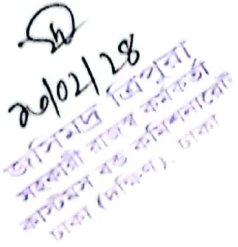 ২০/০২/২৪
ত্রিপুরা
সহকারী রাজস্ব কর্মকর্তা
কাস্টমস বন্ড কমিশনারেট
ঢাকা (দক্ষিণ), ঢাকা